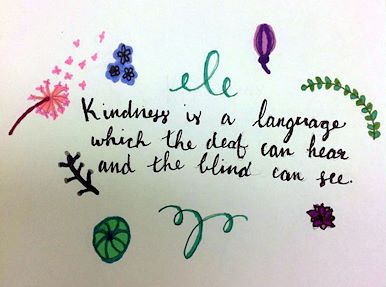 Kindness is a language
which the deaf can hear
and the blind can see.